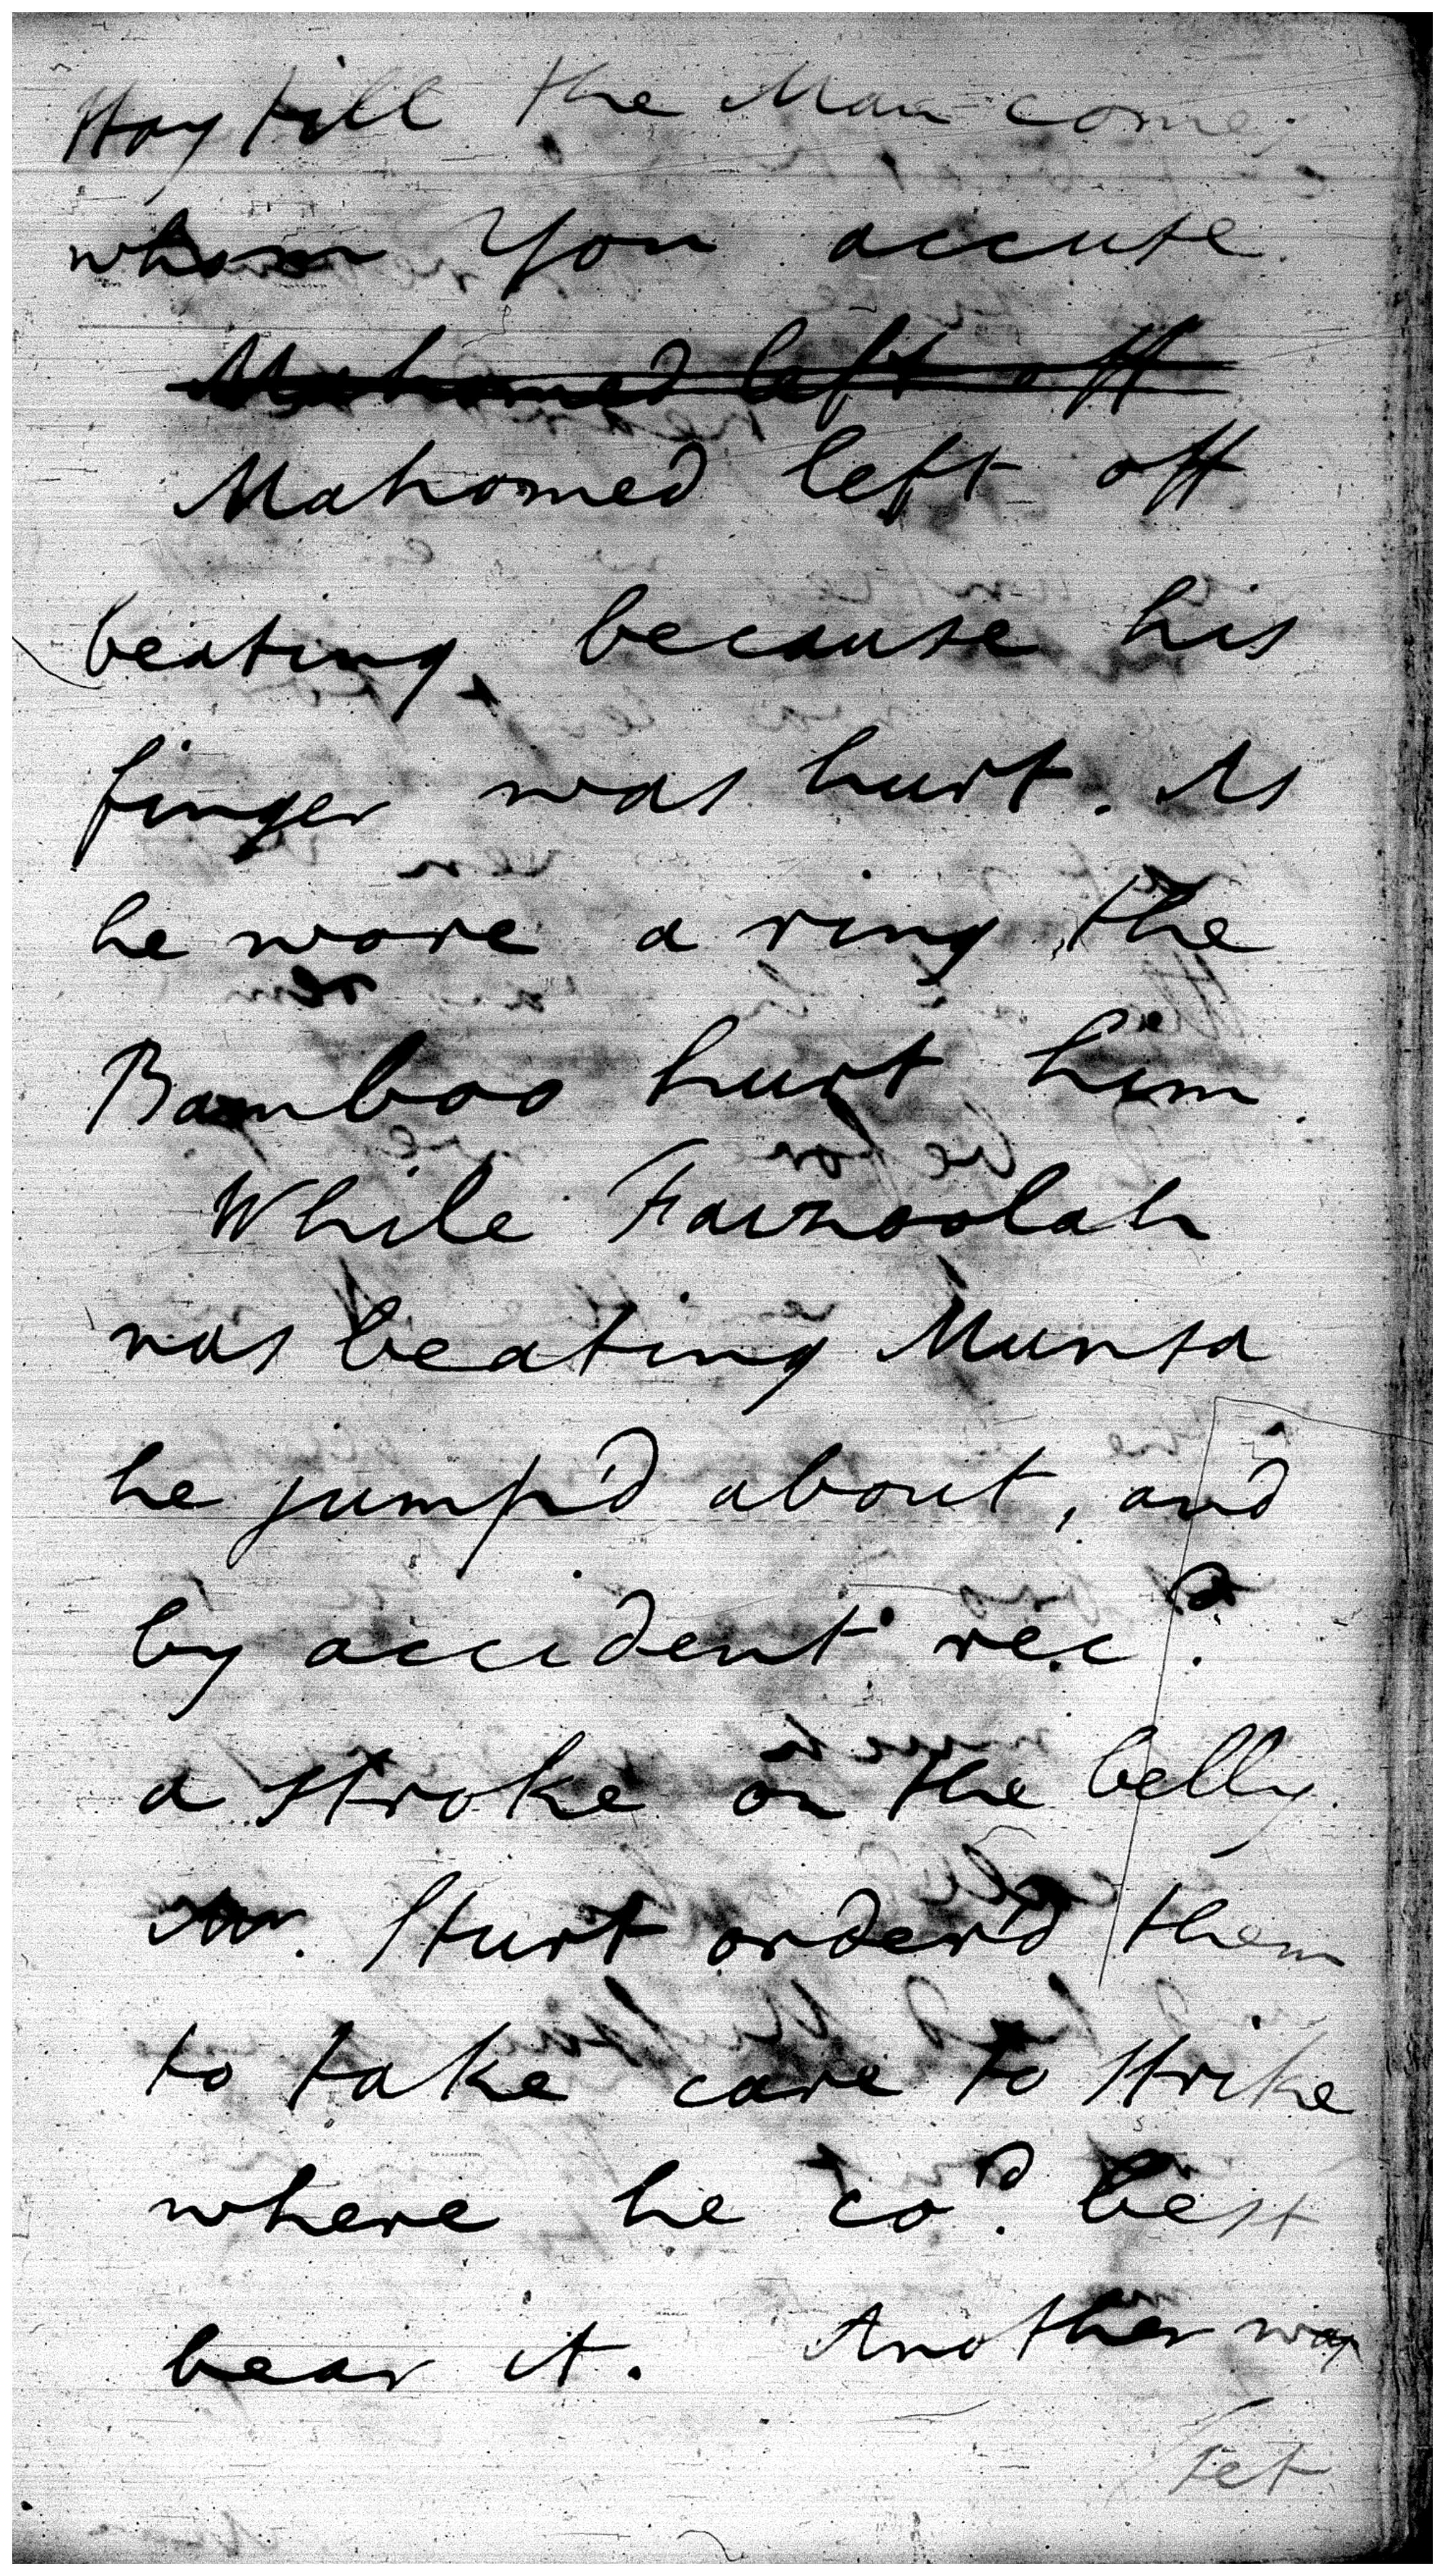 stay till the Man comes
whom You accuse.
Mahomed left off
Mahomed left off
beating, because his
finger was hurt. As
he wore a ring the
Bamboo hurt him.
While Faiznoolah
was beating Munsa
he jump'd about, and
by accident rec.d
a stroke on the belly.
Mr. Sturt order'd them
to take care to strike
where he co.d best
bear it. Another was
set